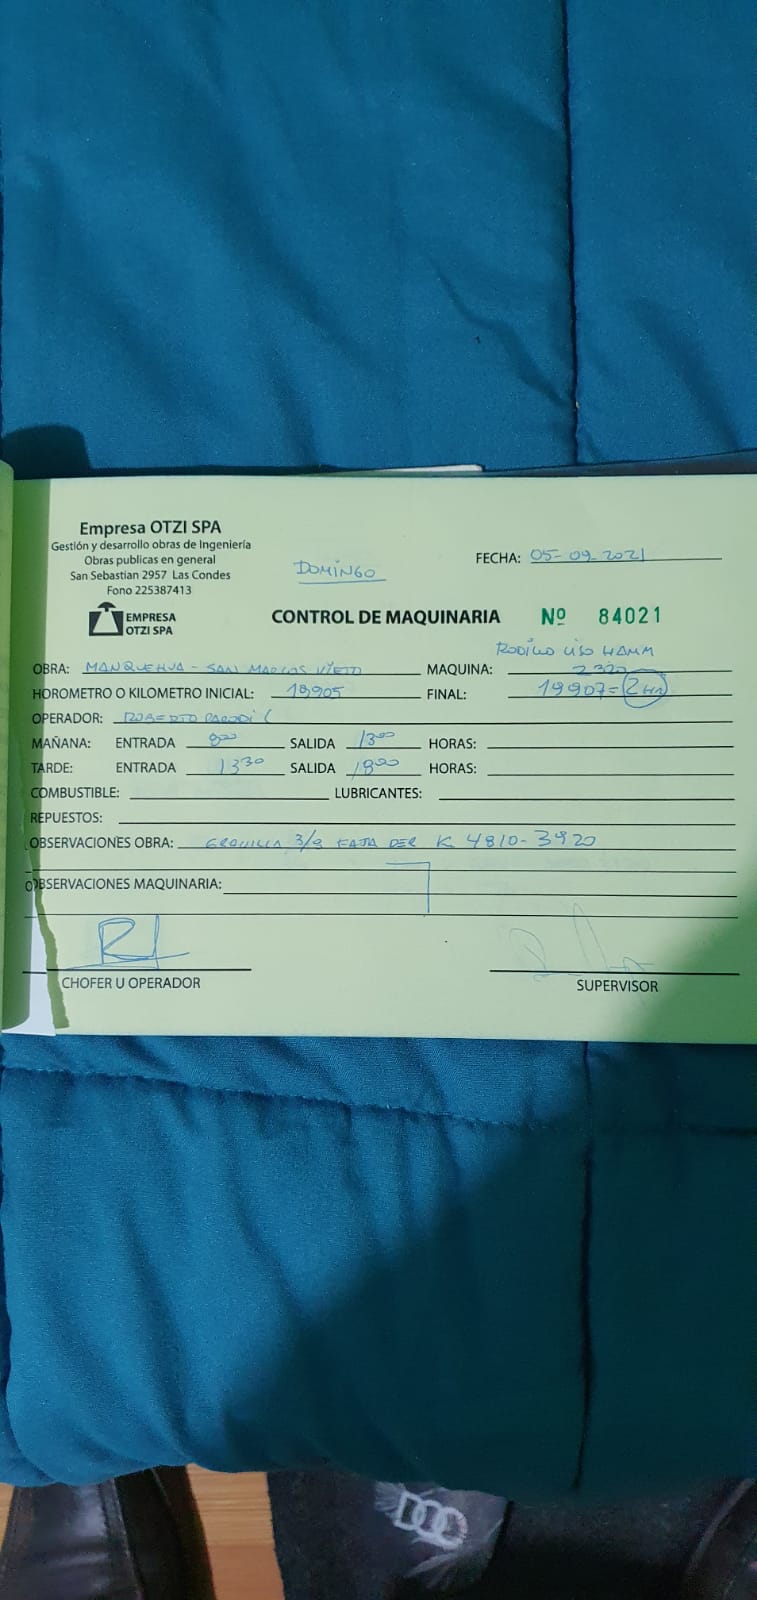 Empresa OTZI SPA
Gestión y desarrollo obras de Ingeniería
Obras publicas en general
San Sebastian 2957 Las Condes
Fono 225387413
EMPRESA
OTZI SPA
DOMINGO
FECHA: 05-09-2021
CONTROL DE MAQUINARIA Nº 84021
RODILLO LISO HAMM
OBRA: MANQUEHUA - SAN MARCOS MAQUINA: 2320
HOROMETRO O KILOMETRO INICIAL: 19905 FINAL: 19907=2
OPERADOR: ROBERTO
MAÑANA: ENTRADA 8:00 SALIDA 13:00 HORAS:
TARDE: ENTRADA 13:30 SALIDA 18:00 HORAS:
COMBUSTIBLE: LUBRICANTES:
REPUESTOS:
OBSERVACIONES OBRA: FAJA DER K 4810-3920
OBSERVACIONES MAQUINARIA:
CHOFER U OPERADOR
SUPERVISOR